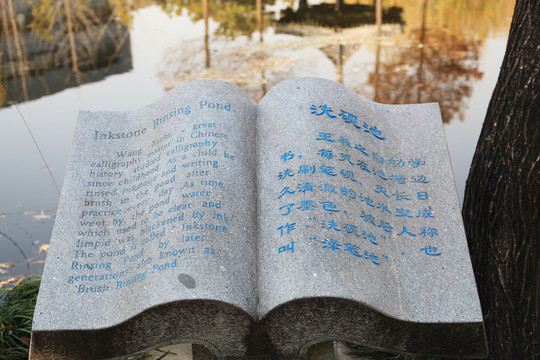 Inkstone Rinsing Pond
Wang Xizhi, a great
calligraphy master in Chinese
history, studied calligraphy
since childhood. As a child, he
rinsed inkstone and writing
brush in the pond after
practice every day. As time
went by, the pond water
which used to be clear and
limpid was blackened by ink
The pond, called "Inkstone
Rinsing Pond" by later
generation, also known as
"Brush Rinsing Pond"
洗砚池
王羲之自幼学
书，每天在池塘边
洗刷笔砚，天长日
久清澈的池水变成
了墨色，被后人称
作“洗砚池”，也
叫“泽笔池”。